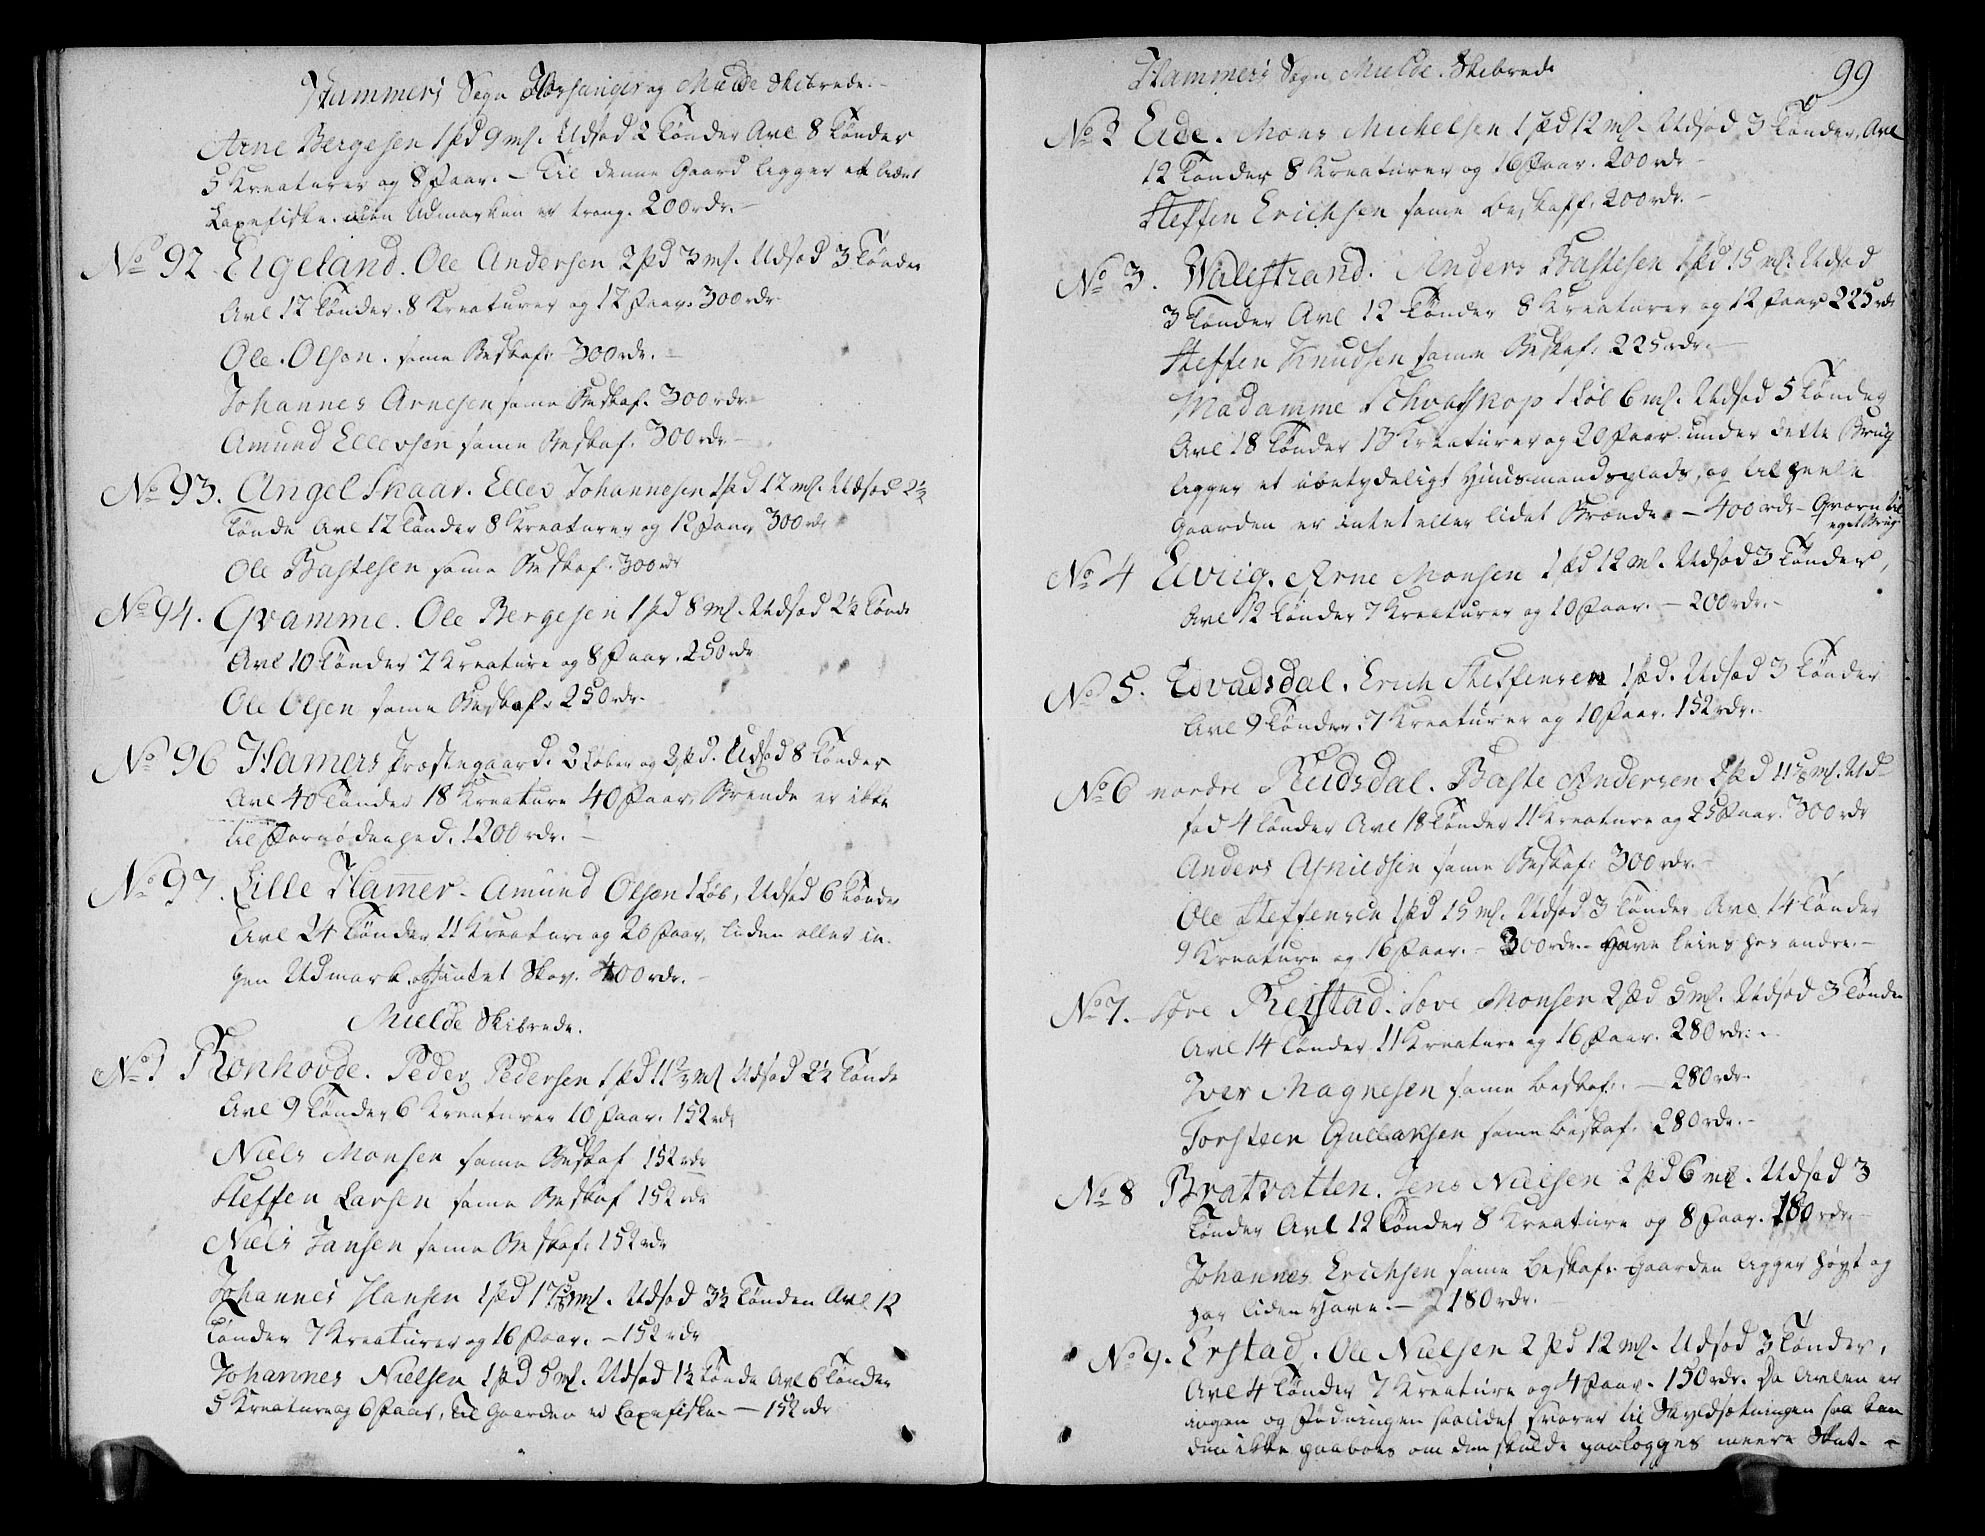 Hammers Sogn Herfanger og Mielde Skibrede.
Arne Bergesen 1 pd 9 mk. Udsæd 2 Tønder Avl 8 Tønder
5 Kreaturer og 8 Faar. – Til denne Gaard ligger et lidet
Laxefiskerie Udmarken er trang. 200 rdr.
No 92. Eigeland. Ole Andersen 2 pd 3 mk. Udsæd 3 Tønder
Avl 12 Tønder. 8 Kreaturer og 12 Faar. 300 rdr.
Ole Olsen. same Beskaf: 300 rdr.
Johannes Arnesen same Beskaf. 300 rdr.
Amund Ellersen same Beskaf. 300 rdr.
No 93. Angel Skaar. Eller Johannesen 1 pd 12 mk. Udsæd 2½
Tønde Avl 12 Tønder 8 Kreaturer og 12 Faar 300 rdr
Ole Bastesen same Beskaf. 300 rdr
No 94. Qvamme. Ole Bergesen 1 pd 8 mk. Udsæd 2½ Tønde
Avl 10 Tønder 7 Kreature og 8 Faar. 250 rdr
Ole Olsen same Beskaf. 250 rdr.
No 96 Hamers Præstegaard. 2 Løber og 2 pd. Udsæd 8 Tønder
Avl 40 Tønder 18 Kreature 40 Faar, Brende er ikke
til Fornødenhed. 1200 rdr.
No 97. Lille Hamer. Amund Olsen 1 Løb, Udsæd 6 Tønder
Avl 24 Tønder 11 Kreature og 20 Faar, liden eller in-
gen Udmark og intet Skov. 400 rdr.
Mielde Skibrede.
No 1 Rønhovde. Peder Pedersen 1 pd 11 mk Udsæd 2½ Tønde
Avl 9 Tønder 6 Kreaturer 10 Faar. 152 rdr
Niels Monsen same Beskaf 152 rdr
Steffen Larsen same Beskaf 152 rdr
Niels Jansen same Beskaf: 152 rdr
Johannes Hansen 1 pd 17 mk. Udsæd 3½ Tønden Avl 12
Tønder 7 Kreaturer og 16 Faar. – 152 rdr
Johannes Nielsen 1 pd 5 mk. Udsæd 1½ Tønde Avl 6 Tønder
5 Kreature og 6 Faar, til Gaarden er Laxefiskerie – 152 rdr
Hammers Sogn Mielde. Skibrede
99
No 2 Eide. Mons Michelsen 1 pd 12 mk. Udsæd 3 Tønder, Avl
12 Tønder 8 Kreaturer og 16 Faar. 200 rdr
Steffen Erichsen same beskaff. 200 rdr.
No 3. Walestrand. Anders Bastesen 1 pd 15 mk. Udsæd
3 Tønder Avl 12 Tønder 8 Kreaturer og 12 Faar 225 rdr
Steffen Knudsen same Beskaf. 225 rdr.
Madamme Schvatskop 1 Løb 6 mk. Udsæd 5 Tønder
Avl 18 Tønder 13 Kreaturer og 20 Faar. under dette Brug
ligger et ubetydeligt Huusmandsplads, og til heele
Gaarden er intet eller lidet Brænde. – 400 rdr – Qværn til
eget Brug
No 4 Elviig. Arne Monsen 1 pd 12 mk. Udsæd 3 Tønder,
Avl 12 Tønder 7 Kreaturer og 10 Faar. – 200 rdr.
No 5. Tovadsdal. Erich Steffensen 1 pd. Udsæd 3 Tønder
Avl 9 Tønder. 7 Kreaturer og 10 Faar. 152 rdr.
No 6 nordre Reidsdal. Baste Andersen 2 pd 11 mk. Ud-
sæd 4 Tønder Avl 18 Tønder 11 Kreature og 25 Faar. 300 rdr
Anders Asnildsen same Beskaf: 300 rdr.
Ole Steffensen 1 pd 15 mk. Udsæd 3 Tønder Avl 14 Tønder
9 Kreature og 16 Faar. – 300 rdr. – Havn leies hos andre. –
No 7. Søre Reistad. Sove Monsen 2 pd 5 mk. Udsæd 3 Tønder
Avl 14 Tønder 11 Kreature og 16 Faar. 280 rdr. –
Iver Magnesen same beskaf: – 280 rdr.
Torsteen Gullaksen same beskaf. 280 rdr. –
No 8 Bratvatten. Jens Nielsen 2 pd 6 mk. Udsæd 3
Tønder Avl 12 Tønder 8 Kreature og 8 Faar. 180 rdr.
Johannes Erichsen same beskaf. Gaarden ligger høyt og
har liden Havn. – 180 rdr.
No 9. Erstad. Ole Nielsen 2 pd 12 mk. Udsæd 3 Tønder.
Avl 4 Tønder 7 Kreature og 4 Faar. 150 rdr. Da Avlen er
ingen og Fødningen saa lidet svarer til Skyldsætningen saa kan
den ikke paaboes om den skulde paalegges meere Skat. –